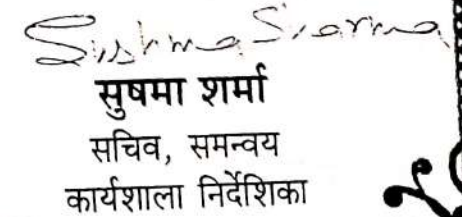 Sushma Sharma
सुषमा शर्मा
सचिव, समन्वय
कार्यशाला निर्देशिका